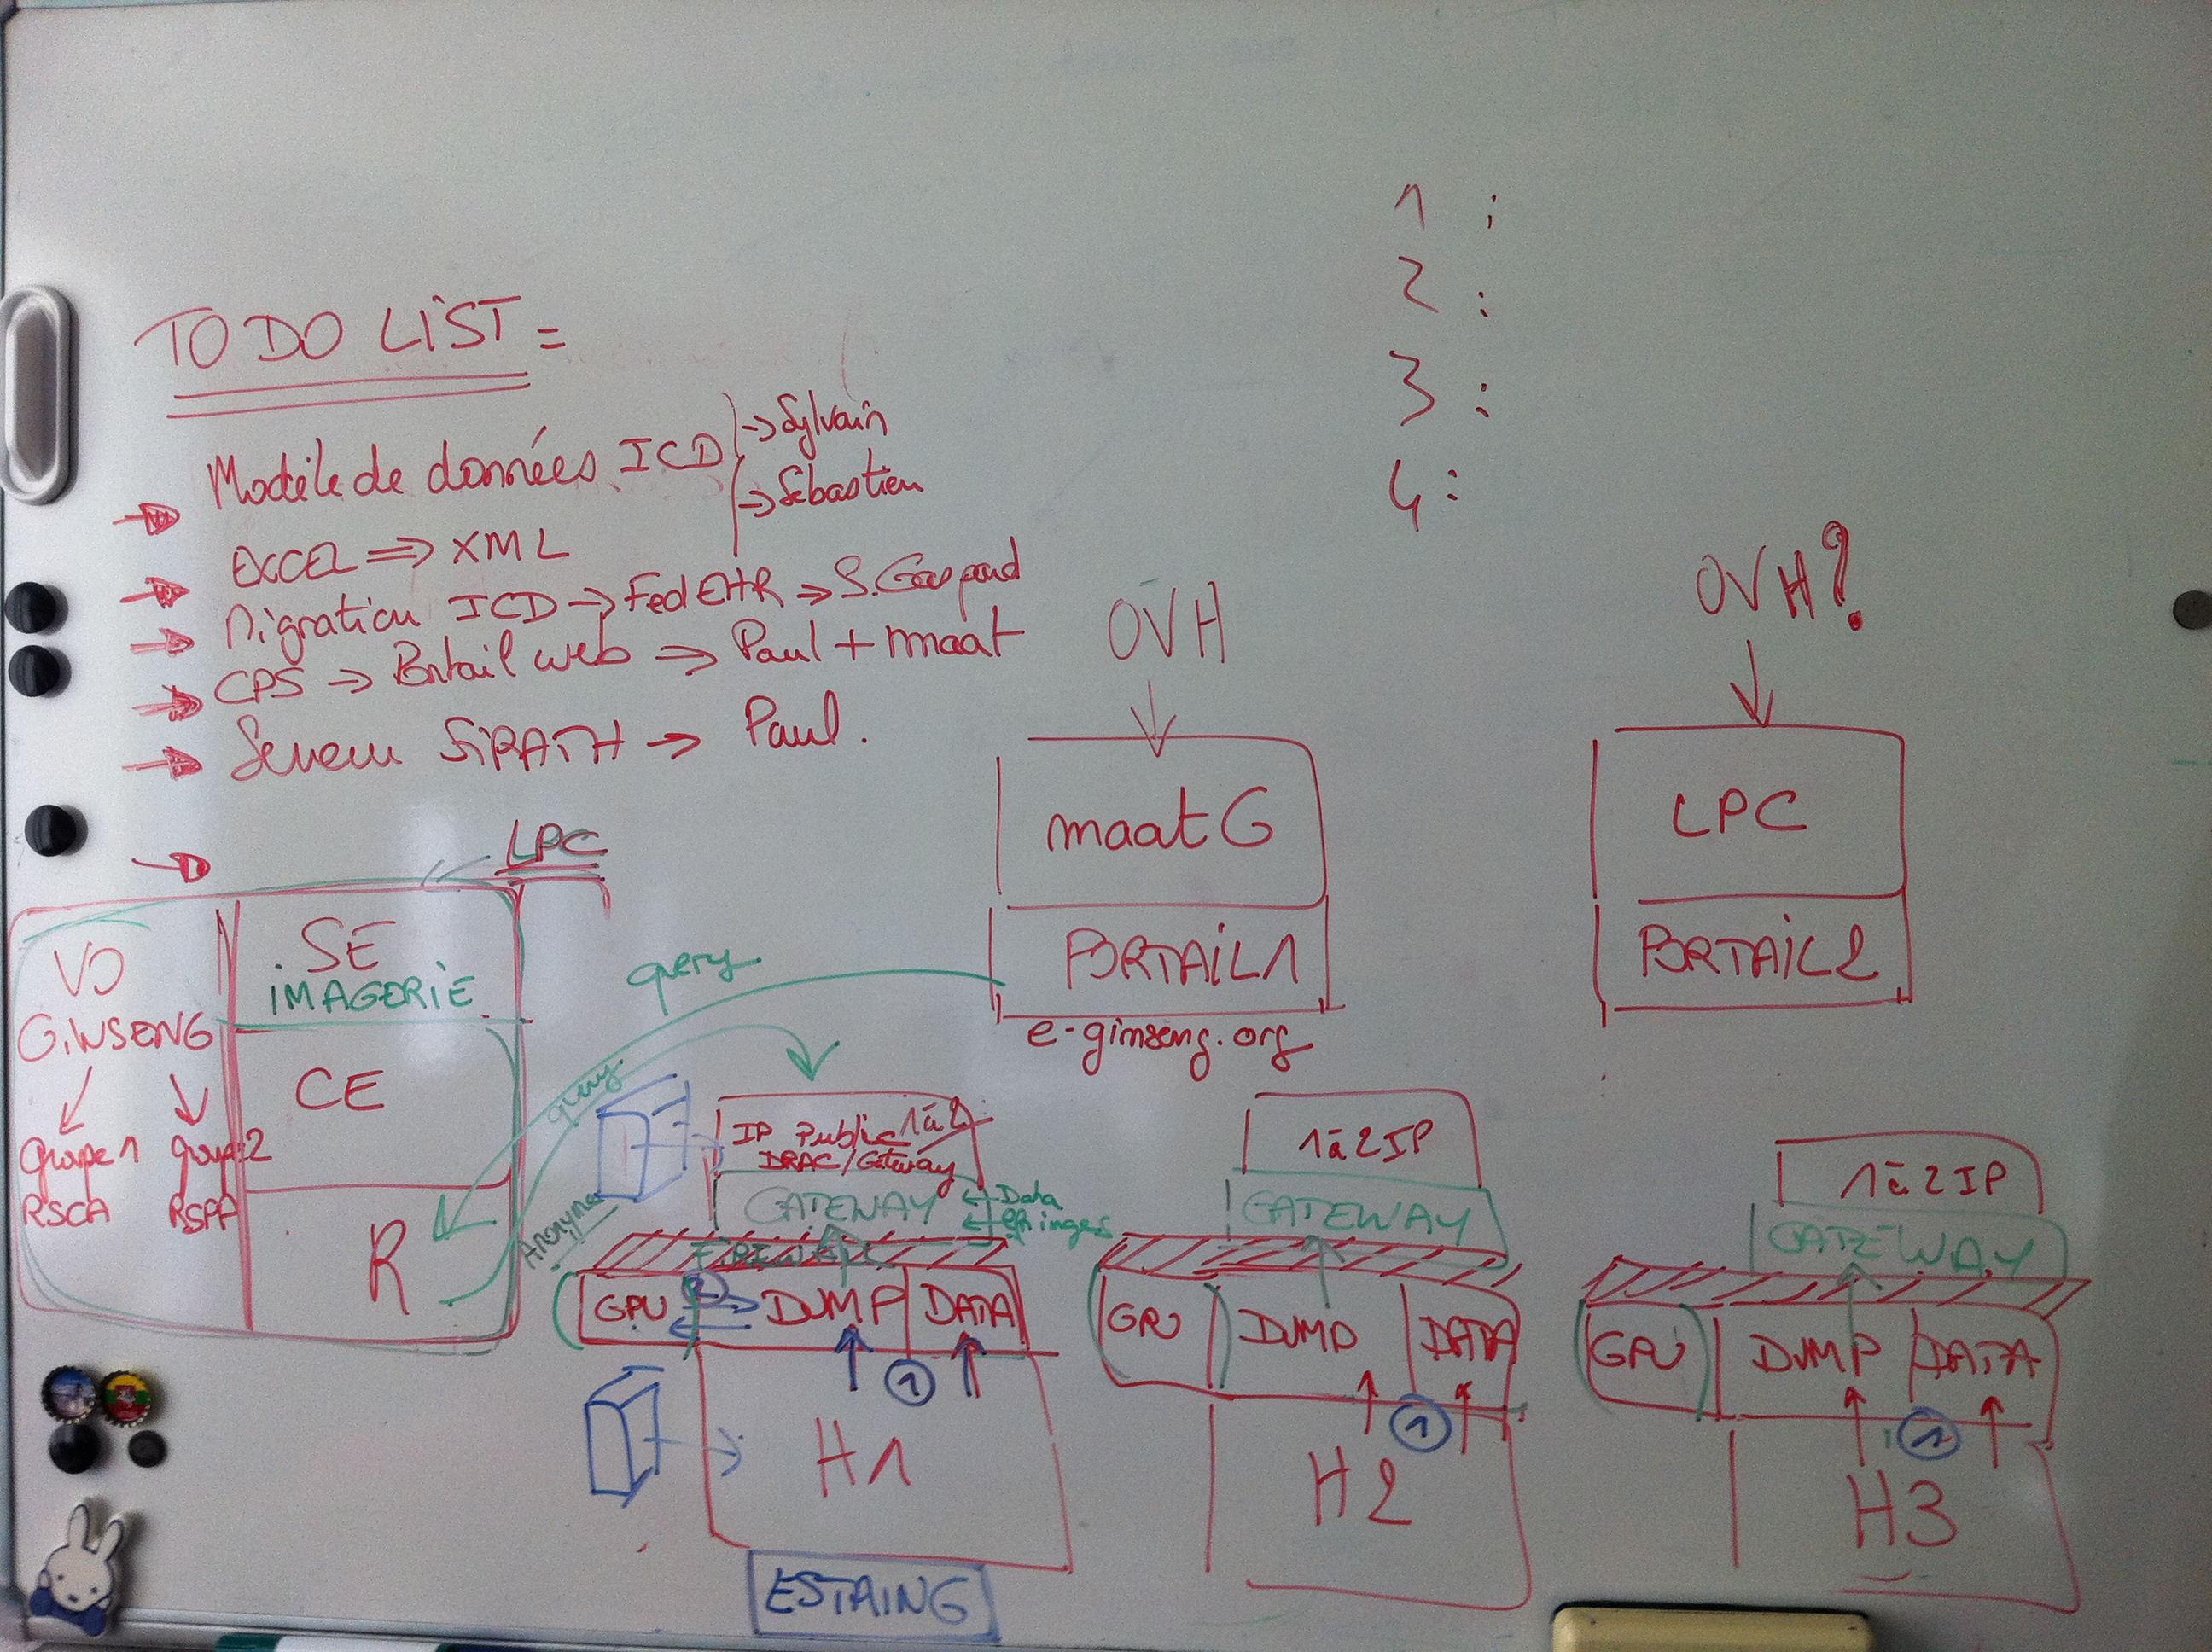 TO DO LIST =
Modèle de données ICD
→ Sylvain
→ Sébastien
EXCEL ⇒ XML
Migration ICD → FedEHR → S. Gaspard
CPS → Portail web → Paul + maat
Serveur SIRATH → Paul.
1 :
2 :
3 :
4 :
OVH
maat G
PORTAIL 1
e-ginseng.org
OVH?
LPC
PORTAIL 2
LPC
VO
GINSENG
groupe 1
RSCA
groupe 2
RSPA
SE
IMAGERIE
CE
R
query
query
Anonyme
IP Public 1 à 2
DRAC/Gateway
GATEWAY
← Data
← images
FIREWALL
GPU
2
DUMP
DATA
1
H1
ESTAING
1 à 2 IP
GATEWAY
GPU
DUMP
DATA
1
H2
1 à 2 IP
GATEWAY
GPU
DUMP
DATA
1
H3